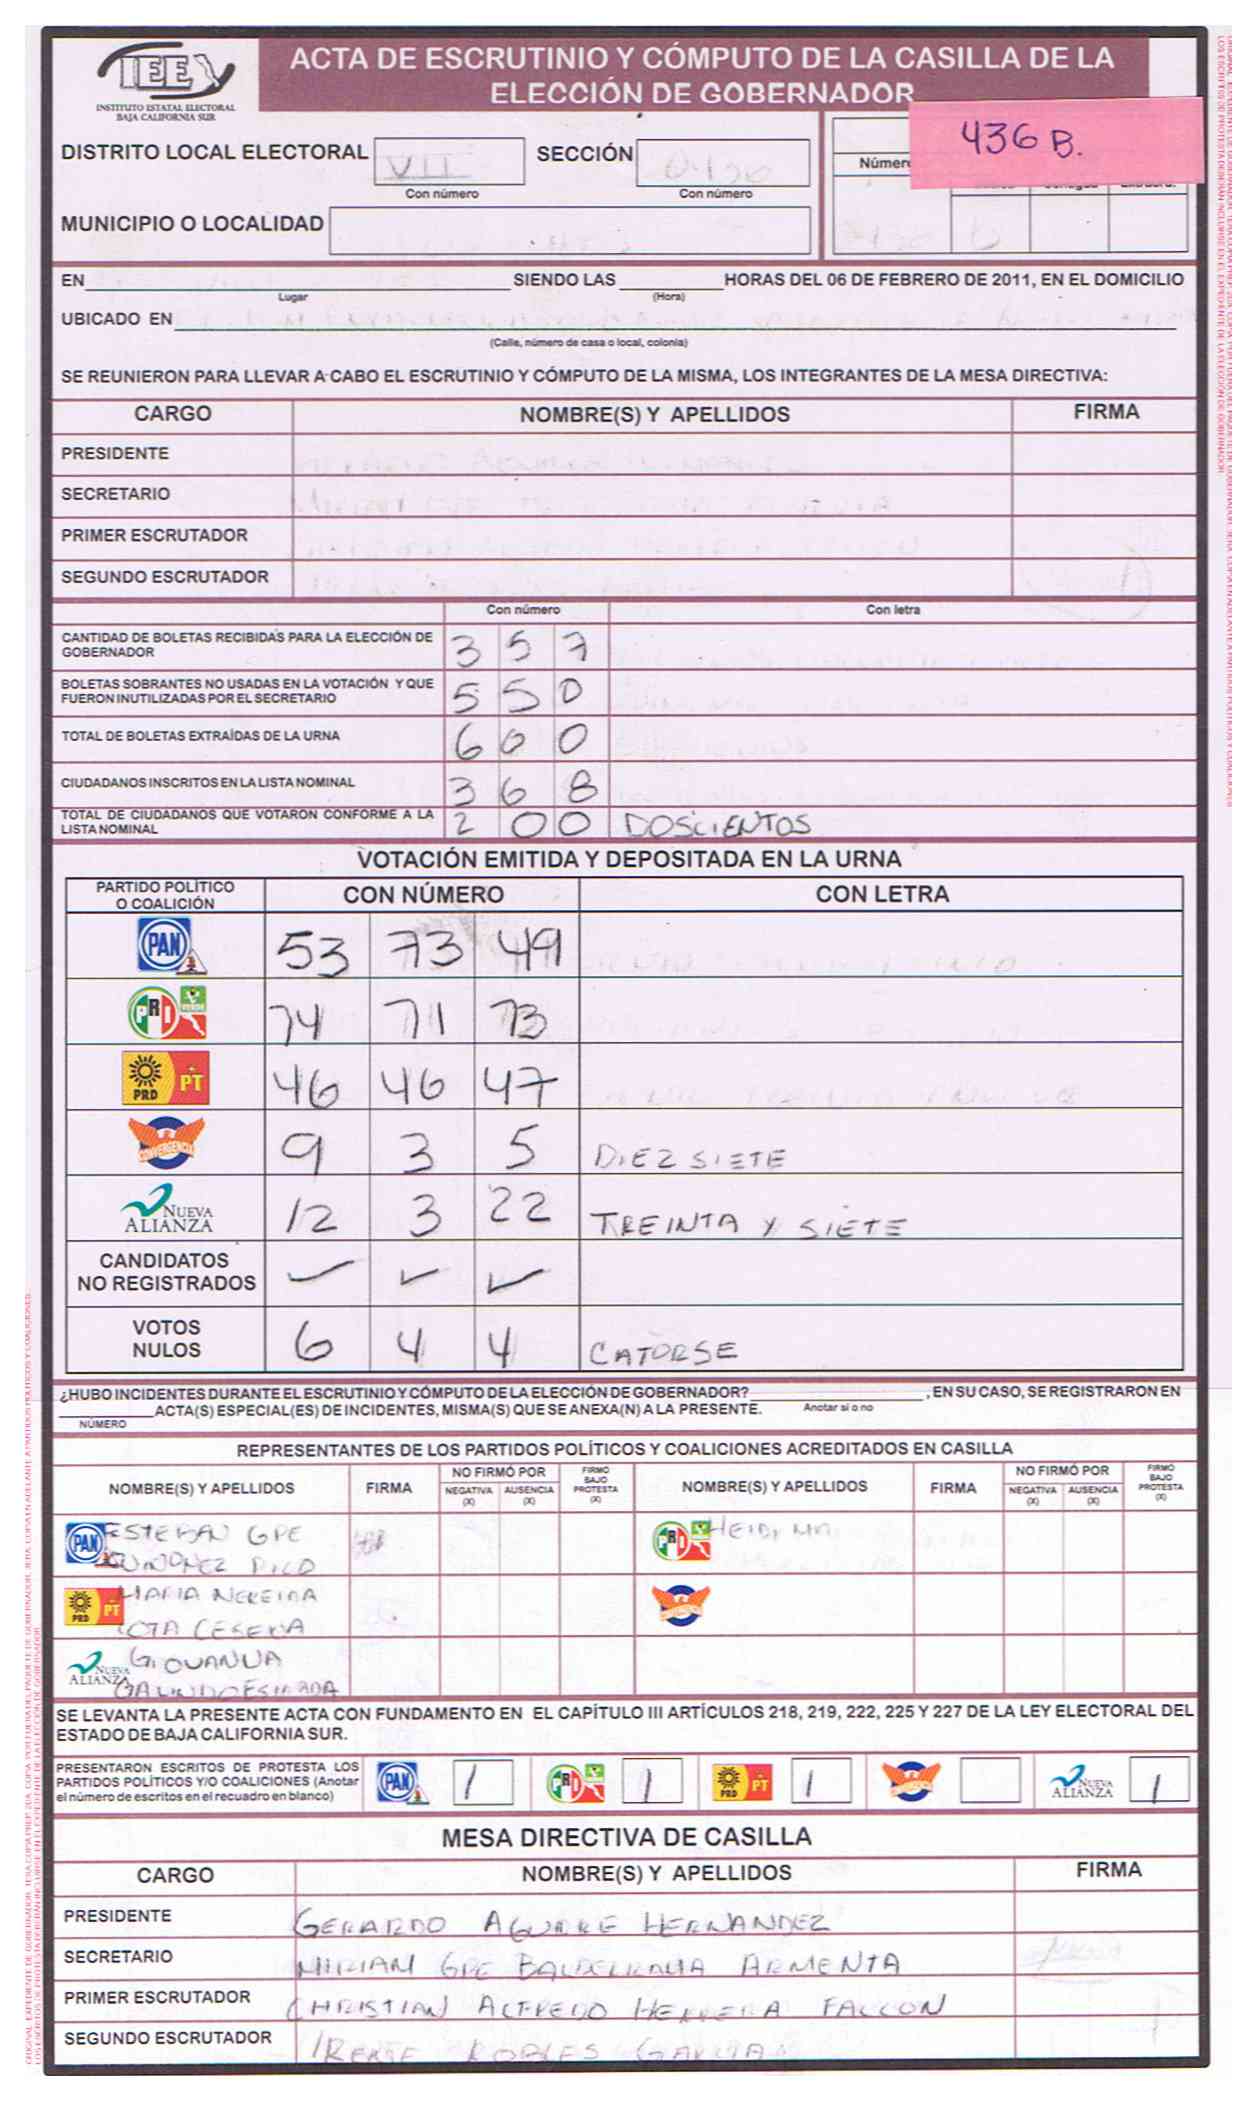 IEE
INSTITUTO ESTATAL ELECTORAL
BAJA CALIFORNIA SUR
ACTA DE ESCRUTINIO Y CÓMPUTO DE LA CASILLA DE LA
ELECCIÓN DE GOBERNADOR
436 B.
DISTRITO LOCAL ELECTORAL VII SECCIÓN
Con número Con número
MUNICIPIO O LOCALIDAD
EN SIENDO LAS HORAS DEL 06 DE FEBRERO DE 2011, EN EL DOMICILIO
Lugar (Hora)
UBICADO EN
(Calle, número de casa o local, colonia)
SE REUNIERON PARA LLEVAR A CABO EL ESCRUTINIO Y CÓMPUTO DE LA MISMA, LOS INTEGRANTES DE LA MESA DIRECTIVA:
CARGO NOMBRE(S) Y APELLIDOS FIRMA
PRESIDENTE
SECRETARIO
PRIMER ESCRUTADOR
SEGUNDO ESCRUTADOR
Con número Con letra
CANTIDAD DE BOLETAS RECIBIDAS PARA LA ELECCIÓN DE
GOBERNADOR 3 5 7
BOLETAS SOBRANTES NO USADAS EN LA VOTACIÓN Y QUE
FUERON INUTILIZADAS POR EL SECRETARIO 5 5 0
TOTAL DE BOLETAS EXTRAÍDAS DE LA URNA 6 0 0
CIUDADANOS INSCRITOS EN LA LISTA NOMINAL 3 6 8
TOTAL DE CIUDADANOS QUE VOTARON CONFORME A LA
LISTA NOMINAL 2 0 0 DOSCIENTOS
VOTACIÓN EMITIDA Y DEPOSITADA EN LA URNA
PARTIDO POLÍTICO
O COALICIÓN CON NÚMERO CON LETRA
PAN 53 73 49
PRI VERDE 74 71 73
PRD PT 46 46 47
CONVERGENCIA 9 3 5 DIEZ SIETE
NUEVA ALIANZA 12 3 22 TREINTA Y SIETE
CANDIDATOS
NO REGISTRADOS
VOTOS
NULOS 6 4 4 CATORSE
¿HUBO INCIDENTES DURANTE EL ESCRUTINIO Y CÓMPUTO DE LA ELECCIÓN DE GOBERNADOR? , EN SU CASO, SE REGISTRARON EN
Anotar si o no
ACTA(S) ESPECIAL(ES) DE INCIDENTES, MISMA(S) QUE SE ANEXA(N) A LA PRESENTE.
NÚMERO
REPRESENTANTES DE LOS PARTIDOS POLÍTICOS Y COALICIONES ACREDITADOS EN CASILLA
NOMBRE(S) Y APELLIDOS FIRMA NO FIRMÓ POR NEGATIVA (X) AUSENCIA (X) FIRMÓ BAJO PROTESTA (X) NOMBRE(S) Y APELLIDOS FIRMA NO FIRMÓ POR NEGATIVA (X) AUSENCIA (X) FIRMÓ BAJO PROTESTA (X)
PAN ESTEBAN GPE PRI HEIDI MA
PRD PT MARIA NEREIDA
COTA CESEÑA
NUEVA ALIANZA GIOVANNA
SE LEVANTA LA PRESENTE ACTA CON FUNDAMENTO EN EL CAPÍTULO III ARTÍCULOS 218, 219, 222, 225 Y 227 DE LA LEY ELECTORAL DEL
ESTADO DE BAJA CALIFORNIA SUR.
PRESENTARON ESCRITOS DE PROTESTA LOS
PARTIDOS POLÍTICOS Y/O COALICIONES (Anotar
el número de escritos en el recuadro en blanco) PAN 1 PRI 1 PRD PT 1 NUEVA ALIANZA 1
MESA DIRECTIVA DE CASILLA
CARGO NOMBRE(S) Y APELLIDOS FIRMA
PRESIDENTE GERARDO AGUIRRE HERNANDEZ
SECRETARIO MIRIAM GPE BALDERRAMA ARMENTA
PRIMER ESCRUTADOR CHRISTIAN ALFREDO HERRERA FALCON
SEGUNDO ESCRUTADOR IRENE ROBLES GARCIA